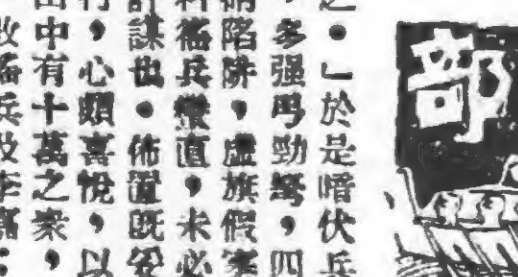 部
之。」於是暗伏兵
,多强弓勁弩,四
陷阱,虛旗假寨
料猺兵蠻直,未必
計謀也。佈置既妥
,心頗喜悅,以
中有十萬之衆,
猺兵及李